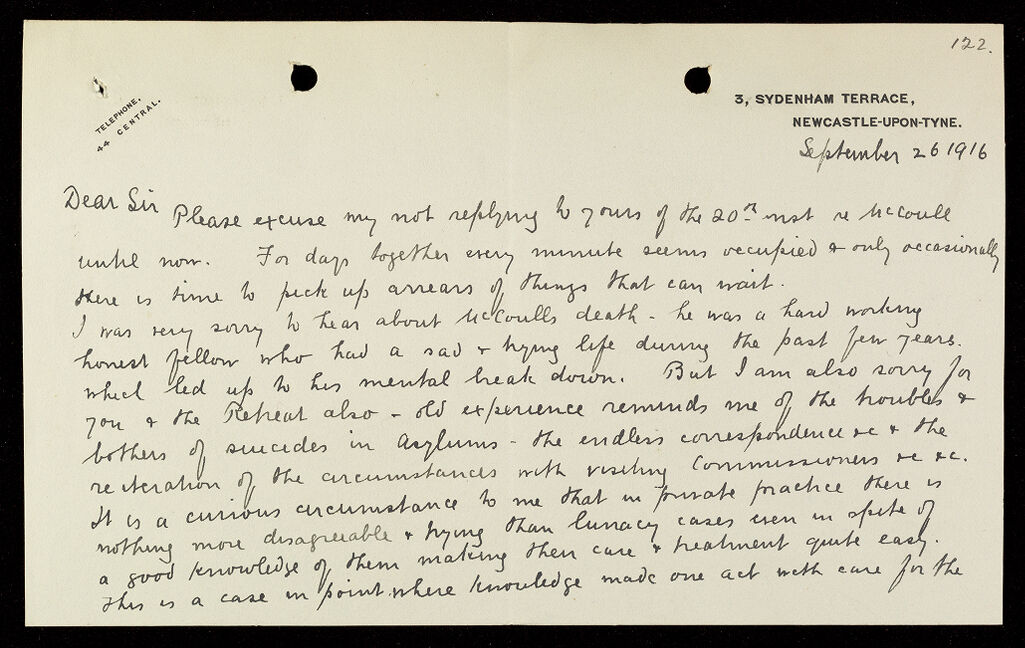 122.
TELEPHONE,
44 CENTRAL.
3, SYDENHAM TERRACE,
NEWCASTLE-UPON-TYNE.
September 26 1916
Dear Sir
Please excuse my not replying to yours of the 20th inst re McCoull
until now. For days together every minute seems occupied & only occasionally
there is time to pick up arrears of things that can wait.
I was very sorry to hear about McCoulls death - he was a hard working
honest fellow who had a sad & trying life during the past few years.
which led up to his mental break down. But I am also sorry for
you & the Retreat also - old experience reminds me of the troubles &
bothers of suicides in Asylums - the endless correspondence &c & the
reiteration of the circumstances with visiting Commissioners &c &c.
It is a curious circumstance to me that in private practice there is
nothing more disagreeable & trying than lunacy cases even in spite of
a good knowledge of them making their care & treatment quite easy.
This is a case in point where knowledge made one act with care for the